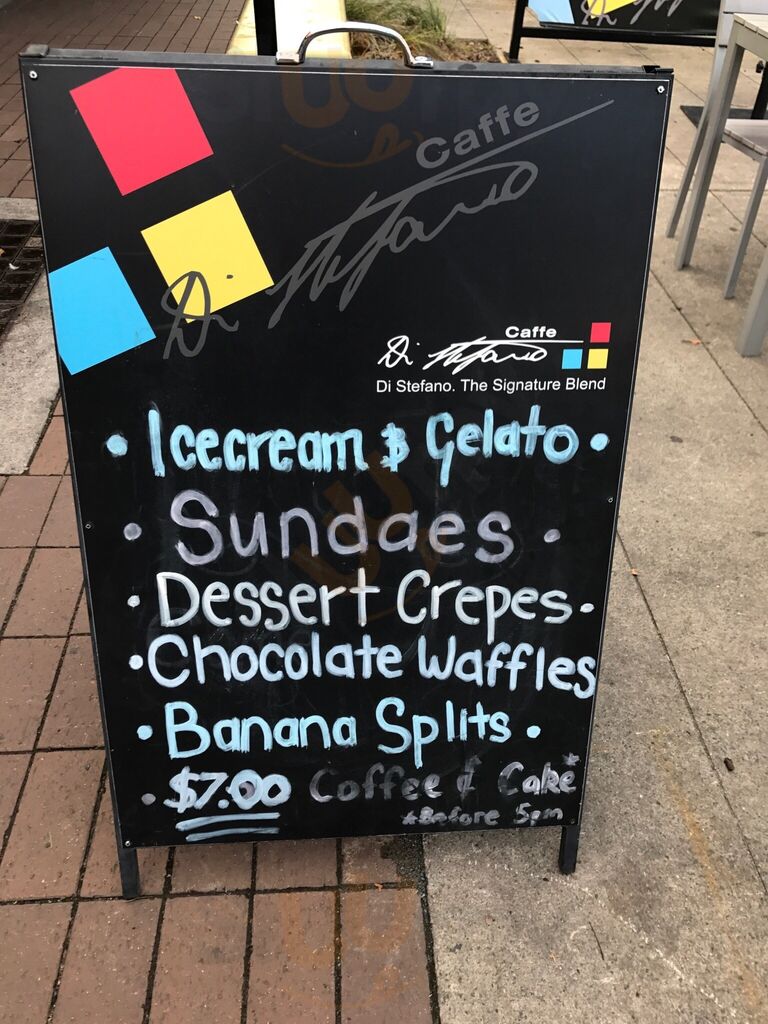 Caffe
Di Stefano
Caffe
Di Stefano
Di Stefano. The Signature Blend
• Icecream & Gelato •
• Sundaes •
• Dessert Crepes •
• Chocolate Waffles
• Banana Splits •
• $7.00 Coffee & Cake*
*Before 5pm